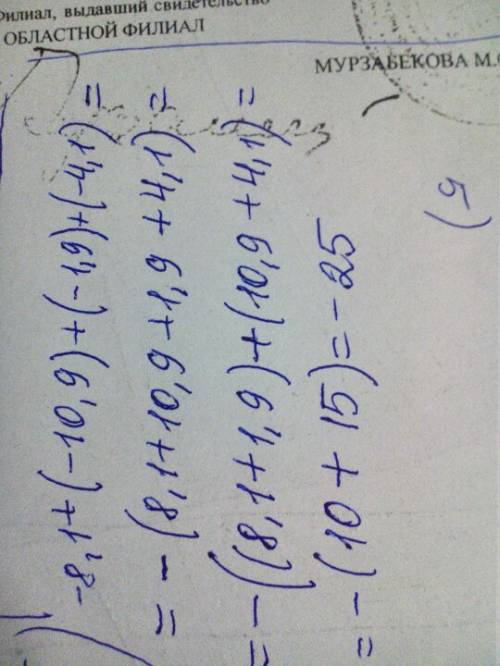 Филиал, выдавший свидетельство
ОБЛАСТНОЙ ФИЛИАЛ
МУРЗАБЕКОВА М.
5)
-8,1+(-10,9)+(-1,9)+(-4,1)=
= -(8,1+10,9+1,9+4,1)=
= -((8,1+1,9)+(10,9+4,1)=
= -(10+15)=-25